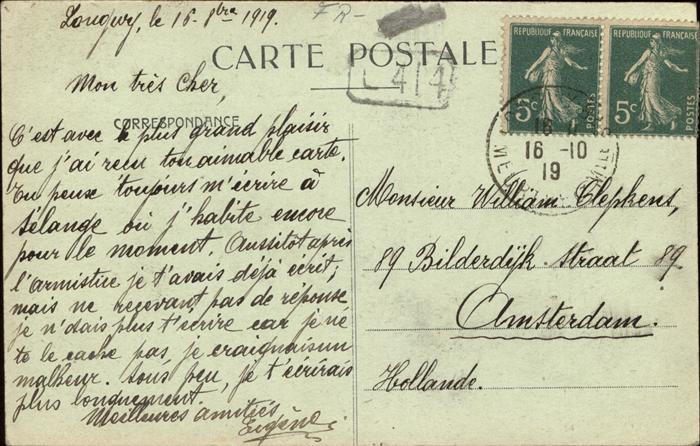 Longwy, le 16-8bre 1919.
FR-
CARTE POSTALE
L 414
RÉPUBLIQUE FRANÇAISE
5c
POSTES
RÉPUBLIQUE FRANÇAISE
5c
POSTES
16
16-10
19
Mon très Cher,
CORRESPONDANCE
C'est avec le plus grand plaisir
que j'ai reçu ton aimable carte.
Tu peux toujours m'écrire à
Sélange où j'habite encore
pour le moment. Aussitot après
l'armistice je t'avais déjà écrit;
mais ne recevant pas de réponse
je n'osais plus t'écrire car je ne
te le cache pas, je craignais un
malheur. Sous peu, je t'écrirais
plus longuement.
Meilleures amitiés
Eugène
Monsieur William Clepkens,
89 Bilderdijk-straat 89
Amsterdam.
Hollande.